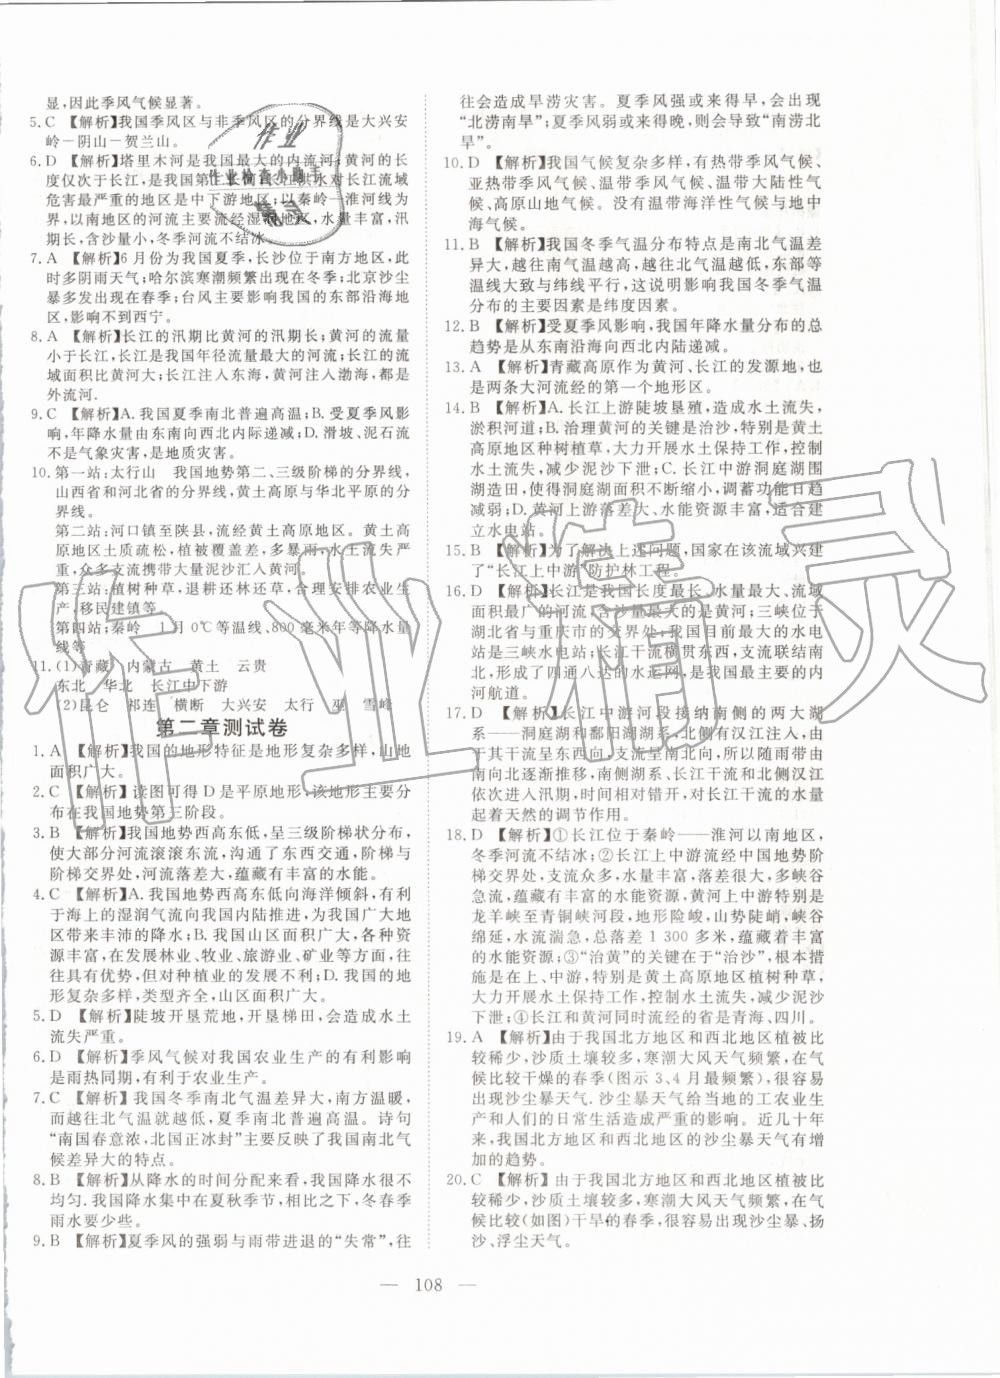 显,因此季风气候显著。
5. C 【解析】我国季风区与非季风区的分界线是大兴安
岭-阴山-贺兰山。
6. D 【解析】塔里木河是我国最大的内流河;黄河的长
度仅次于长江,是我国第二长河;长江洪水对长江流域
危害最严重的地区是中下游地区;以秦岭-淮河线为
界,以南地区的河流主要流经湿润地区,水量丰富,汛
期长,含沙量小,冬季河流不结冰。
7. A 【解析】6 月份为我国夏季,长沙位于南方地区,此
时多阴雨天气;哈尔滨寒潮频繁出现在冬季;北京沙尘
暴多发出现在春季;台风主要影响我国的东部沿海地
区,影响不到西宁。
8. A 【解析】长江的汛期比黄河的汛期长;黄河的流量
小于长江,长江是我国年径流量最大的河流;长江的流
域面积比黄河大;长江注入东海,黄河注入渤海,都是
外流河.
9. C 【解析】A. 我国夏季南北普遍高温;B. 受夏季风影
响,年降水量由东南向西北内际递减;D. 滑坡、泥石流
不是气象灾害,是地质灾害。
10. 第一站:太行山 我国地势第二、三级阶梯的分界线,
山西省和河北省的分界线,黄土高原与华北平原的分界
线。
第二站:河口镇至陕县,流经黄土高原地区。黄土高
原地区土质疏松,植被覆盖差,多暴雨,水土流失严
重,众多支流携带大量泥沙汇入黄河。
第三站:植树种草,退耕还林还草,合理安排农业生
产,移民建镇等。
第四站:秦岭 1 月 0℃等温线、800 毫米年等降水量
线等
11. (1)青藏 内蒙古 黄土 云贵
东北 华北 长江中下游
(2)昆仑 祁连 横断 大兴安 太行 巫 雪峰
第二章测试卷
1. A 【解析】我国的地形特征是地形复杂多样,山地
面积广大。
2. C 【解析】读图可得 D 是平原地形,该地形主要分
布在我国地势第三阶段。
3. B 【解析】我国地势西高东低,呈三级阶梯状分布,
使大部分河流滚滚东流,沟通了东西交通,阶梯与
阶梯交界处,河流落差大,蕴藏有丰富的水能。
4. C 【解析】A. 我国地势西高东低向海洋倾斜,有利
于海上的湿润气流向我国内陆推进,为我国广大地
区带来丰沛的降水;B. 我国山区面积广大,各种资
源丰富,在发展林业、牧业、旅游业、矿业等方面,往
往具有优势,但对种植业的发展不利;D. 我国的地
形复杂多样,类型齐全,山区面积广大。
5. D 【解析】陡坡开垦荒地,开垦梯田,会造成水土
流失严重。
6. D 【解析】季风气候对我国农业生产的有利影响
是雨热同期,有利于农业生产。
7. C 【解析】我国冬季南北气温差异大,南方温暖,
而越往北气温就越低,夏季南北普遍高温。诗句
“南国春意浓,北国正冰封”主要反映了我国南北气
候差异大的特点。
8. B 【解析】从降水的时间分配来看,我国降水很不
均匀. 我国降水集中在夏秋季节,相比之下,冬春季
雨水要少些。
9. B 【解析】夏季风的强弱与雨带进退的“失常”,往
往会造成旱涝灾害。夏季风强或来得早,会出现
“北涝南旱”;夏季风弱或来得晚,则会导致“南涝北
旱”。
10. D 【解析】我国气候复杂多样,有热带季风气候、
亚热带季风气候、温带季风气候、温带大陆性气
候、高原山地气候。没有温带海洋性气候与地中
海气候。
11. B 【解析】我国冬季气温分布特点是南北气温差
异大,越往南气温越高,越往北气温越低,东部等
温线大致与纬线平行,这说明影响我国冬季气温
分布的主要因素是纬度因素。
12. B 【解析】受夏季风影响,我国年降水量分布的总
趋势是从东南沿海向西北内陆递减。
13. A 【解析】青藏高原作为黄河、长江的发源地,也
是两条大河流经的第一个地形区。
14. B 【解析】A. 长江上游陡坡垦殖,造成水土流失,
淤积河道;B. 治理黄河的关键是治沙,特别是黄土
高原地区种树植草,大力开展水土保持工作,控制
水土流失,减少泥沙下泄;C. 长江中游洞庭湖围
湖造田,使得洞庭湖面积不断缩小,调蓄功能日趋
减小。D. 黄河上游落差大、水能资源丰富,适合建
立水电站。
15. B 【解析】为了解决上述问题,国家在该流域兴建
了“长江上中游”防护林工程。
16. D 【解析】长江是我国长度最长、水量最大、流域
面积最广的河流,含沙量最大的是黄河;三峡位于
湖北省与重庆市的交界处;我国目前最大的水电
站是三峡水电站;长江干流横贯东西,支流联结南
北,形成了四通八达的水运网,是我国最重要的内
河航道。
17. D 【解析】长江中游河段接纳南侧的两大湖
系——洞庭湖和鄱阳湖湖系,北侧有汉江注入,由
于其干流呈东西向,南北支流众多,随着夏季雨带
由南向北逐渐推移,南侧湖系、长江干流和北侧汉江
依次进入汛期,时间相对错开,对长江干流的水量
起着天然的调节作用。
18. D 【解析】①长江位于秦岭——淮河以南地区,
冬季河流不结冰;②长江上中游流经中国地势阶
梯交界处,支流众多,水量丰富,落差大,多峡谷
急流,蕴藏有丰富的水能资源,黄河上中游特别是
龙羊峡至青铜峡河段,地形险峻,山势陡峭,峡谷
绵延,水流湍急,总落差 1 300 多米,蕴藏着丰富
的水能资源;③“治黄”的关键在于“治沙”,根本措
施是在上、中游,特别是黄土高原地区植树种草,
大力开展水土保持工作,控制水土流失,减少泥沙
下泄;④长江和黄河同流经的省是青海、四川。
19. A 【解析】由于我国北方地区和西北地区植被比
较稀少,沙质土壤较多,寒潮大风天气频繁,在气
候比较干燥的春季(图示 3、4 月最频繁),很容易
出现沙尘暴天气. 沙尘暴天气给当地的工农业生
产和人们的日常生活造成严重的影响。近几十年
来,我国北方地区和西北地区的沙尘暴天气有增
加的趋势。
20. C 【解析】由于我国北方地区和西北地区植被比
较稀少,沙质土壤较多,寒潮大风天气频繁,在气
候比较(如图)干旱的春季,很容易出现沙尘暴、扬
沙、浮尘天气。
— 108 —
作业
作业检查小助手
精灵
作业精灵